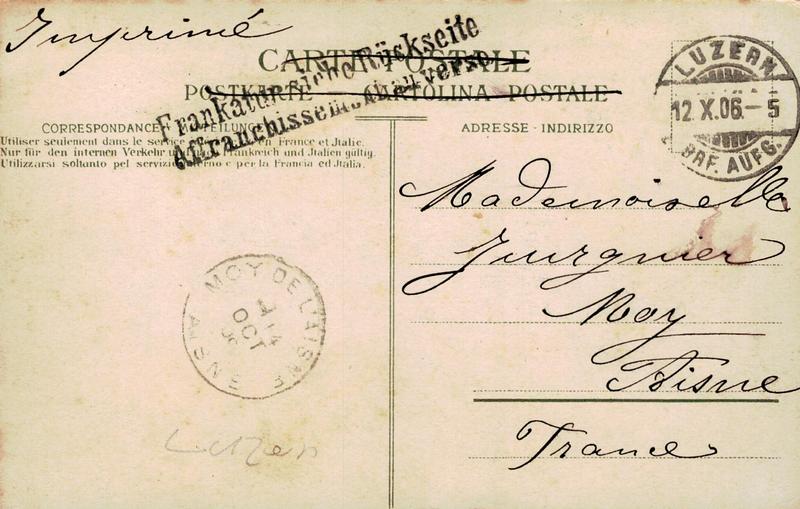 Imprimé
CARTE POSTALE
POSTKARTE CARTOLINA POSTALE
Frankatur siehe Rückseite
Affranchissement au verso
CORRESPONDANCE - MITTEILUNG
Utiliser seulement dans le service en France et Italie.
Nur für den internen Verkehr Frankreich und Italien gültig.
Utilizzarsi soltanto pel servizio interno e per la Francia ed Italia.
ADRESSE - INDIRIZZO
LUZERN
12.X.06.-5
BRF. AUFG.
Mademoiselle
Jurgnier
Moy
Aisne
France
MOY DE L'AISNE
14
OCT
AISNE
Luzern